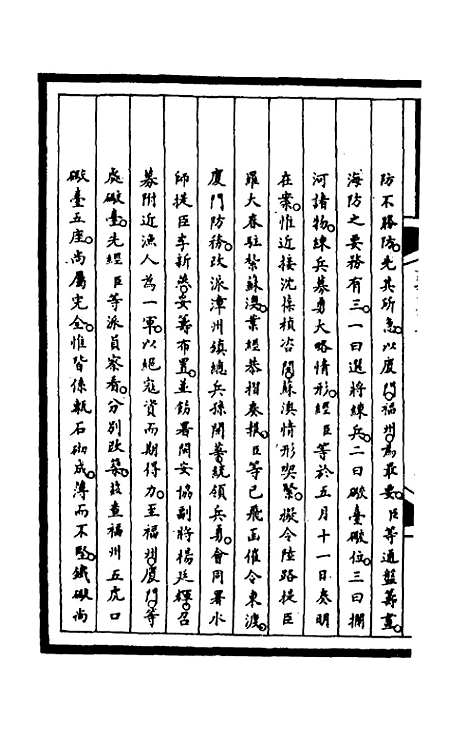 防不勝防。先其所急。以廈門福州。爲最要。臣等通盤籌畫。
海防之要務有三。一曰選將練兵。二曰礮臺礮位。三曰攔
河諸物。練兵募勇大略情形。經臣等於五月十一日奏明
在案。惟近接沈葆楨咨開。蘇澳情形喫緊。擬令陸路提臣
羅大春駐紮蘇澳。業經恭摺奏报。臣等已飛函催令東渡。
廈門防務。改派漳州鎮總兵孫開華。統領兵勇。會同署水
師提臣李新燕。妥籌布置。並飭署閩安協副將楊廷輝。召
募附近漁人爲一軍。以絕寇資而期得力。至福州。廈門。等
處礮臺。先經臣等派員察看。分別改築。茲查福州五虎口
礮臺五座。尚屬完全。惟皆係甎石砌成。薄而不堅。鐵礮尚